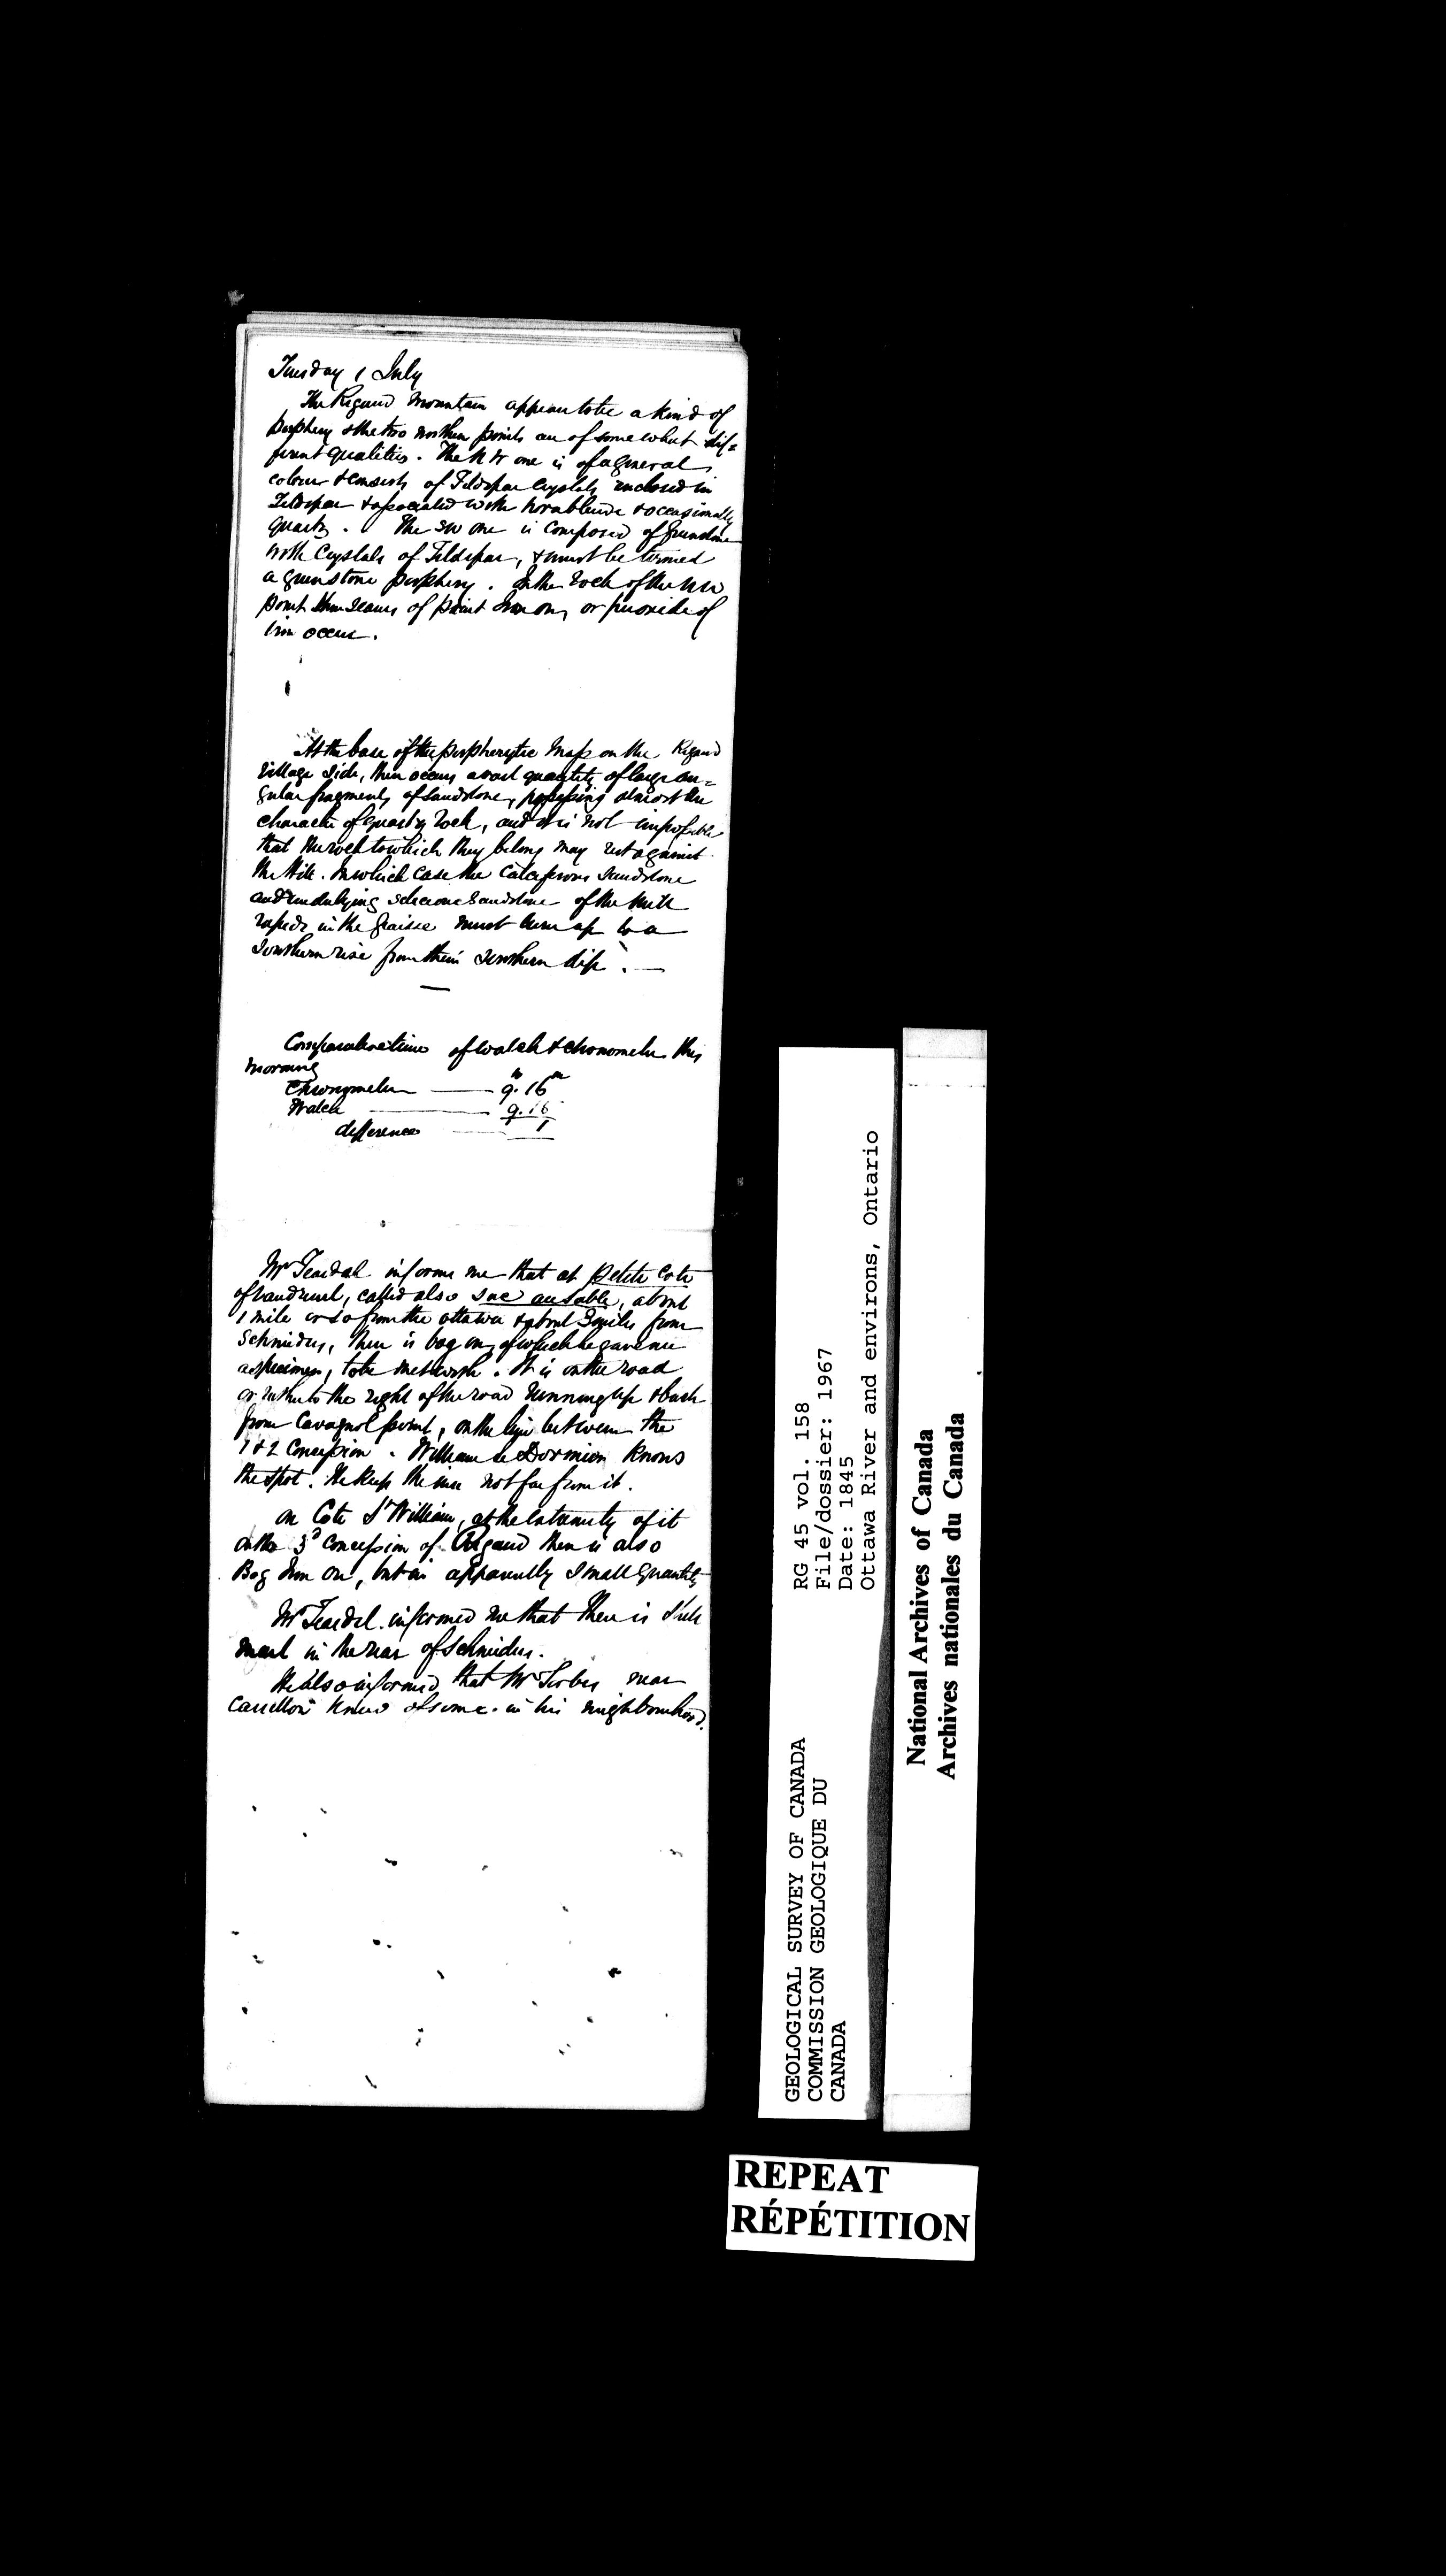 Tuesday 1 July
The Rigaud Mountain appears to be a kind of
porphery & the two northern points are of somewhat dif=
ferent qualities. The N one is of a general
colour & consists of Feldspar crystals enclosed in
Feldspar & associated with hornblende & occasionally
quartz. The SW one is composed of Greenstone
with Crystals of Feldspar, & must be termed
a greenstone porphery. In the rock of the NW
point thin seams of paint Iron ore, or peroxide of
iron occur.
At the base of the porpherytic Mass on the Rigaud
Village side, there occurs a vast quantity of large an=
gular fragments of sandstone, possessing almost the
character of quartz rock, and it is not improbable
that the rock to which they belong may rest against
the Hill. In which case the Calciferous Sandstone
and underlying siliceous Sandstone of the
rapids in the Graisse must turn up to a
Southern rise from their Southern dip. —
Comparative time of watch & chronometer this
morning
Chronometer — 9h. 16m
Watch — 9. 16
difference — 1
Mr Teasdal informs me that at Petite Cote
of Vaudreuil, called also sac au sable, about
1 mile or so from the Ottawa & about 3 miles from
Schneiders, there is bog ore, of which he gave me
a specimen, to be met with. It is on the road
or rather to the right of the road running up & back
from Cavagnol point, on the line between the
1 & 2 Concession. William knows
the spot. He keeps the inn not far from it.
On Cote St William, at the extremity of it
on the 3d Concession of Rigaud there is also
Bog Iron ore, but in apparently small quantity
Mr Teasdel informed me that there is Shell
marl in the rear of Schneiders.
He also informed that Mr Forbes near
Carillon knew of some in his neighbourhood.
GEOLOGICAL SURVEY OF CANADA
COMMISSION GEOLOGIQUE DU
CANADA
RG 45 vol. 158
File/dossier: 1967
Date: 1845
Ottawa River and environs, Ontario
National Archives of Canada
Archives nationales du Canada
REPEAT
RÉPÉTITION